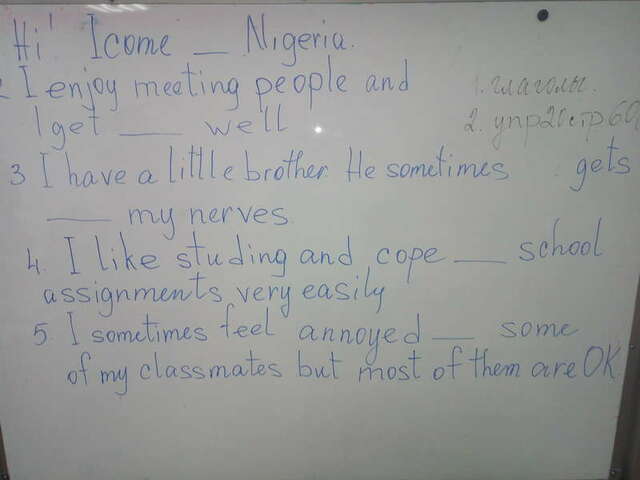 Hi! I come __ Nigeria.
2 I enjoy meeting people and
I get ____ well
3 I have a little brother. He sometimes gets
____ my nerves
4. I like studing and cope ___ school
assignments very easily
5. I sometimes feel annoyed ___ some
of my classmates but most of them are OK
1. глаголы.
2. упр2стр60